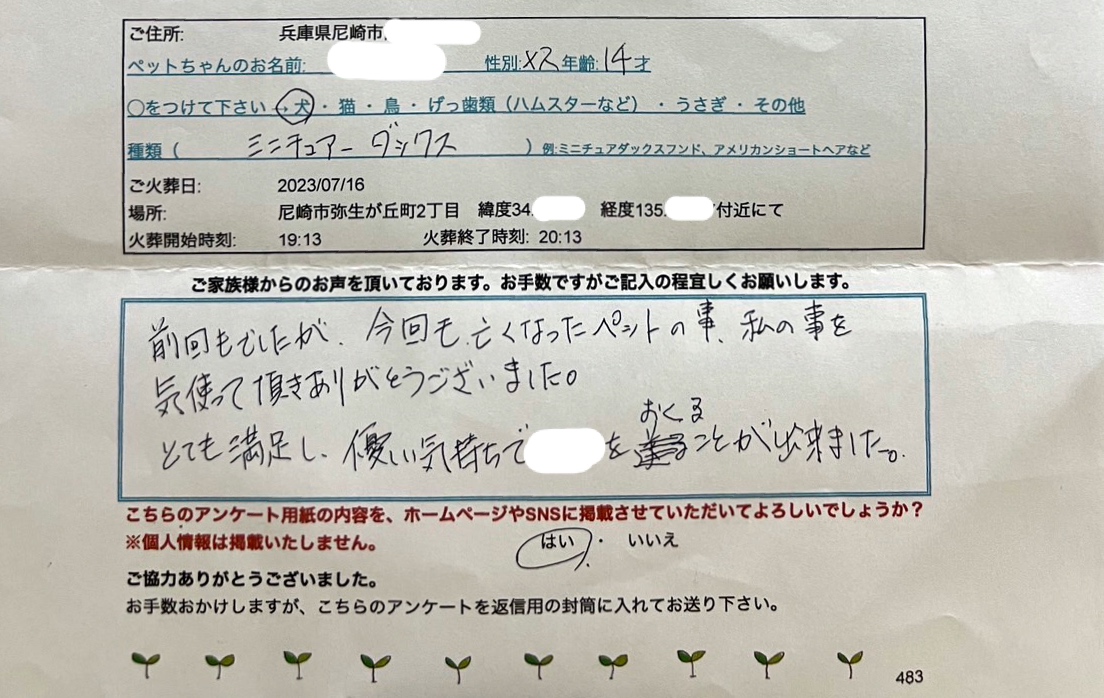 ご住所: 兵庫県尼崎市
ペットちゃんのお名前: 性別:メス 年齢:14才
○をつけて下さい→犬・猫・鳥・げっ歯類(ハムスターなど)・うさぎ・その他
種類( ミニチュアーダックス )例:ミニチュアダックスフンド、アメリカンショートヘアなど
ご火葬日: 2023/07/16
場所: 尼崎市弥生が丘町2丁目 緯度34. 経度135. 付近にて
火葬開始時刻: 19:13 火葬終了時刻: 20:13
ご家族様からのお声を頂いております。お手数ですがご記入の程宜しくお願いします。
前回もでしたが、今回も亡くなったペットの事、私の事を
気使って頂きありがとうございました。
とても満足し、優しい気持ちで を おくる ことが出来ました。
こちらのアンケート用紙の内容を、ホームページやSNSに掲載させていただいてよろしいでしょうか?
※個人情報は掲載いたしません。 はい ・ いいえ
ご協力ありがとうございました。
お手数おかけしますが、こちらのアンケートを返信用の封筒に入れてお送り下さい。
483